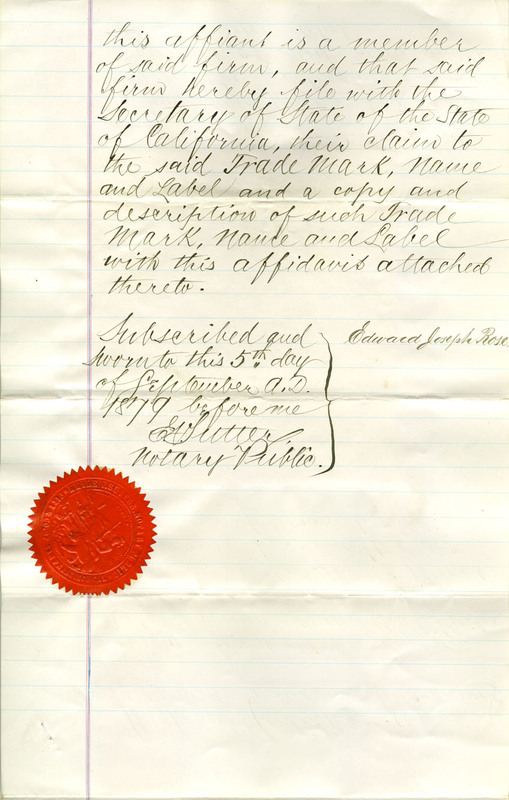 this affiant is a member
of said firm, and that said
firm hereby file with the
Secretary of State of the State
of California, their claim to
the said Trade Mark, Name
and Label and a copy and
description of such Trade
Mark, Name and Label
with this affidavit attached
thereto.
Subscribed and
sworn to this 5th day
of September A.D.
1879 before me
Sutter
Notary Public.
Edward Joseph Rose